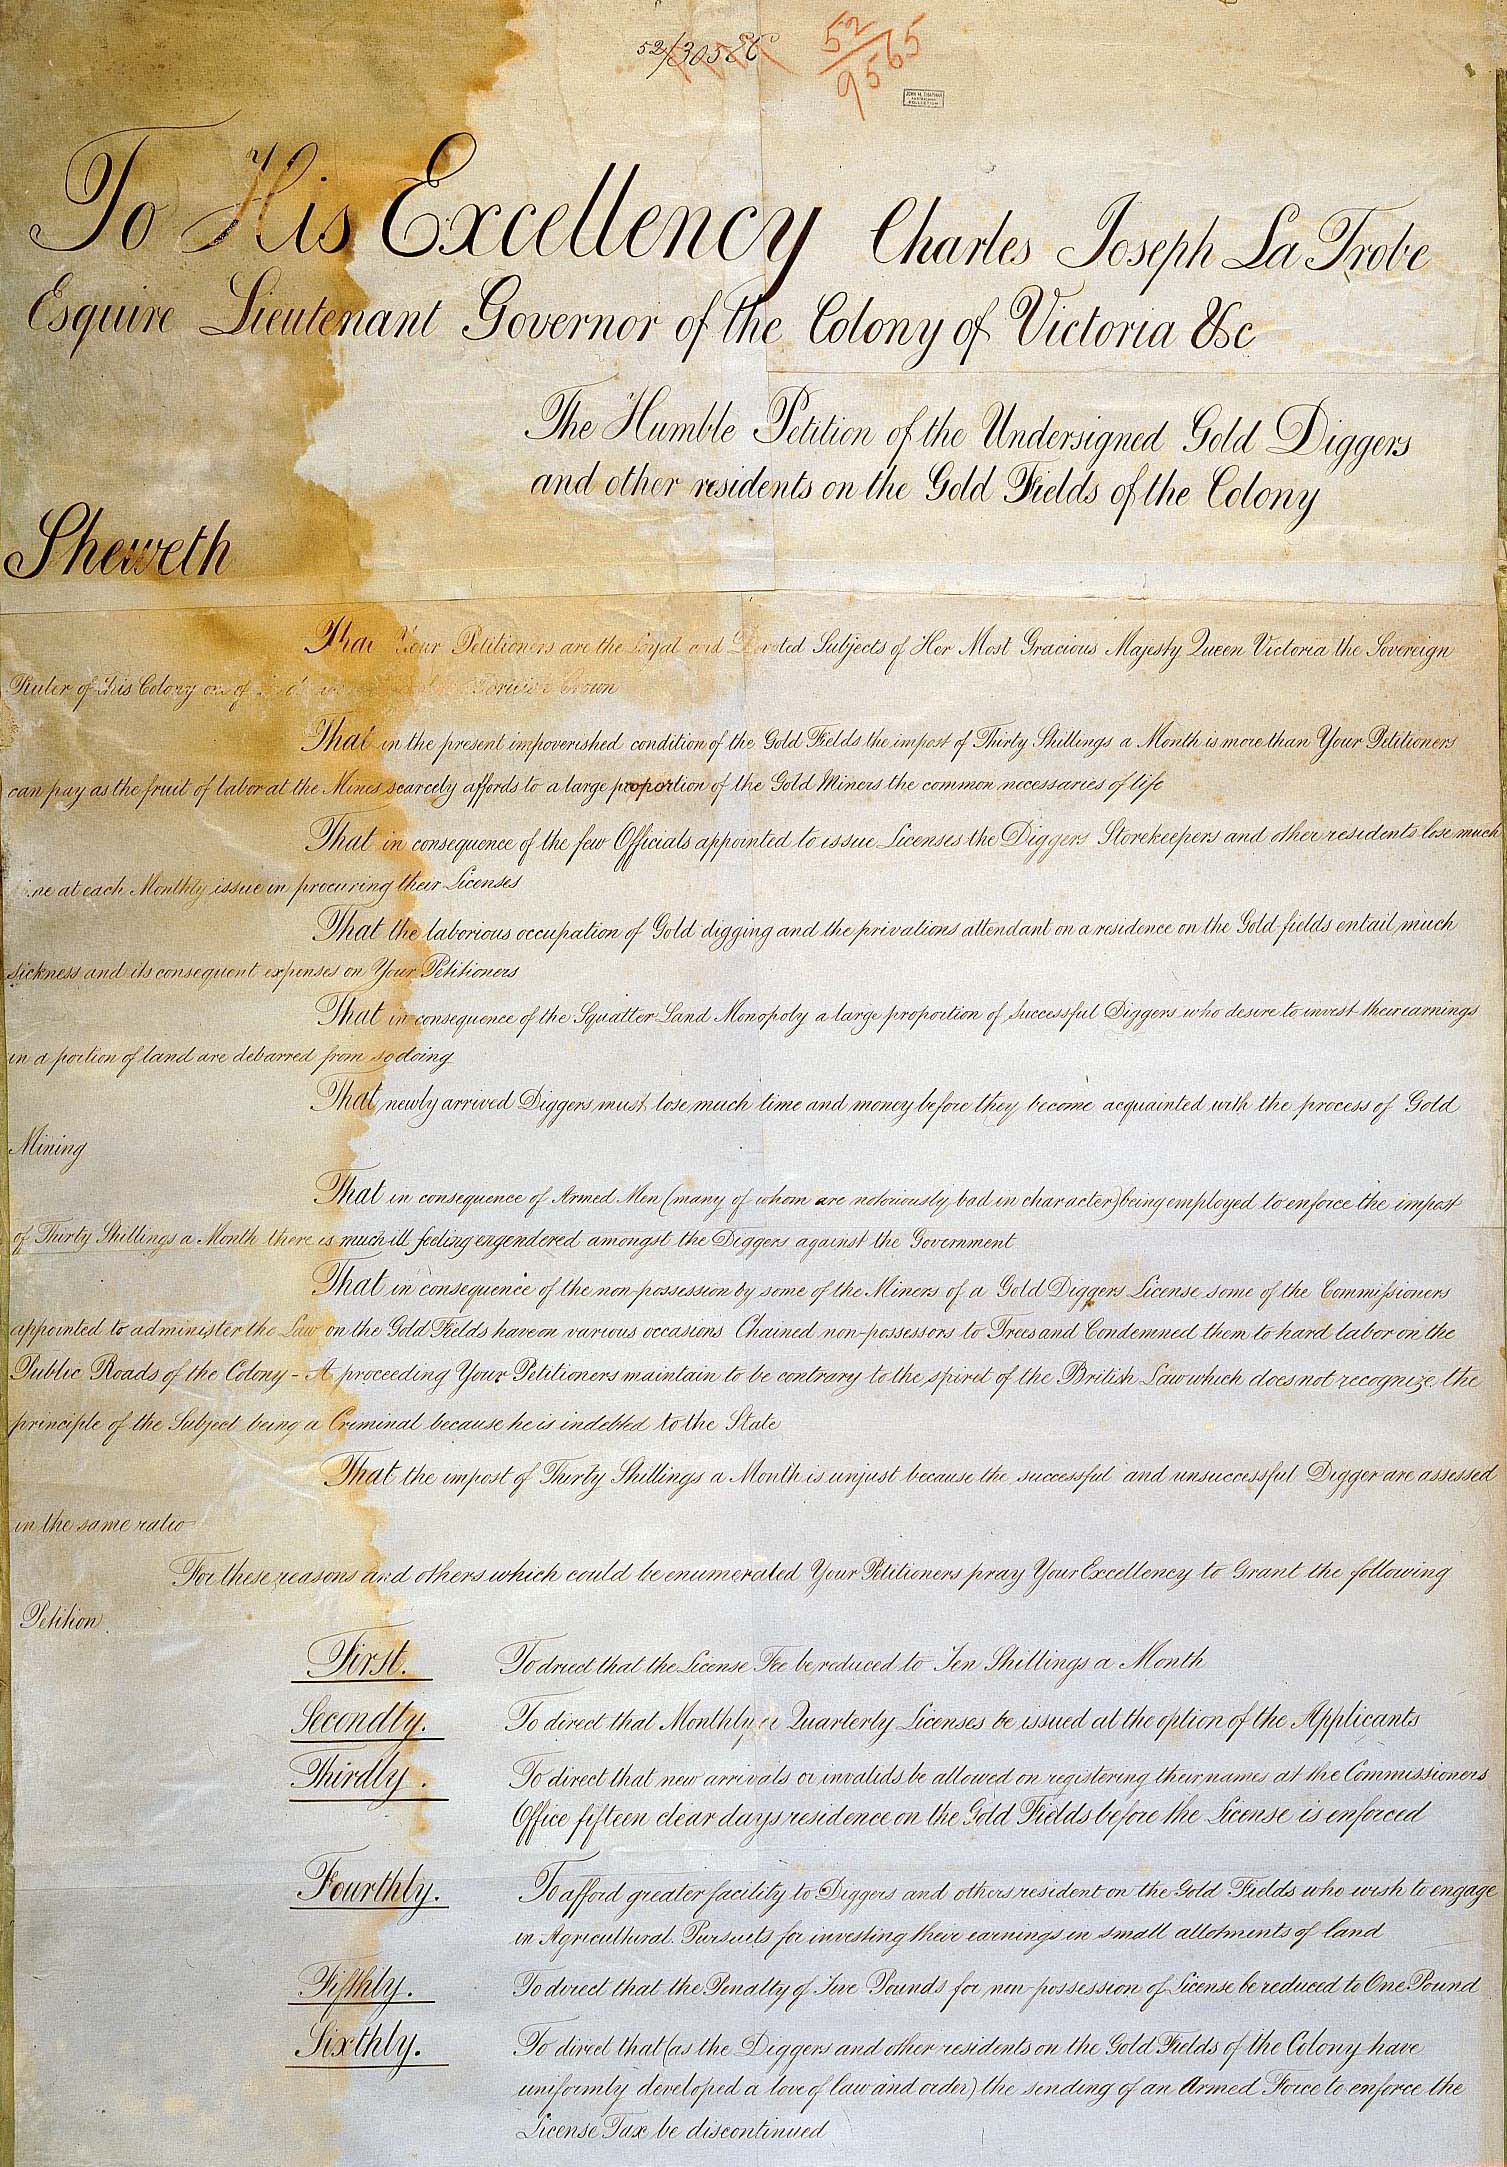 52/30586
52/9565
JOHN M. CHAPMAN
AUSTRALIAN
COLLECTION
To His Excellency Charles Joseph La Trobe
Esquire Lieutenant Governor of the Colony of Victoria &c
The Humble Petition of the Undersigned Gold Diggers
and other residents on the Gold Fields of the Colony
Sheweth
That Your Petitioners are the Loyal and Devoted Subjects of Her Most Gracious Majesty Queen Victoria the Sovereign
Ruler of this Colony one of Crown
That in the present impoverished condition of the Gold Fields the impost of Thirty Shillings a Month is more than Your Petitioners
can pay as the fruit of labor at the Mines scarcely affords to a large proportion of the Gold Miners the common necessaries of life
That in consequence of the few Officials appointed to issue Licenses the Diggers Storekeepers and other residents lose much
time at each Monthly issue in procuring their Licenses
That the laborious occupation of Gold digging and the privations attendant on a residence on the Gold-fields entail much
sickness and its consequent expenses on Your Petitioners
That in consequence of the Squatter Land Monopoly a large proportion of successful Diggers who desire to invest their earnings
in a portion of land are debarred from so doing
That newly arrived Diggers must lose much time and money before they become acquainted with the process of Gold
Mining
That in consequence of Armed Men (many of whom are notoriously bad in character) being employed to enforce the impost
of Thirty Shillings a Month there is much ill feeling engendered amongst the Diggers against the Government
That in consequence of the non-possession by some of the Miners of a Gold Diggers License some of the Commissioners
appointed to administer the Law on the Gold Fields have on various occasions Chained non-possessors to Trees and Condemned them to hard labor on the
Public Roads of the Colony - A proceeding Your Petitioners maintain to be contrary to the spirit of the British Law which does not recognize the
principle of the Subject being a Criminal because he is indebted to the State
That the impost of Thirty Shillings a Month is unjust because the successful and unsuccessful Digger are assessed
in the same ratio
For these reasons and others which could be enumerated Your Petitioners pray Your Excellency to Grant the following
Petition
First. To direct that the License Fee be reduced to Ten Shillings a Month
Secondly. To direct that Monthly or Quarterly Licenses be issued at the option of the Applicants
Thirdly. To direct that new arrivals or invalids be allowed on registering their names at the Commissioners
Office fifteen clear days residence on the Gold Fields before the License is enforced
Fourthly. To afford greater facility to Diggers and others resident on the Gold Fields who wish to engage
in Agricultural Pursuits for investing their earnings in small allotments of land
Fifthly. To direct that the Penalty of Five Pounds for non-possession of License be reduced to One Pound
Sixthly. To direct that (as the Diggers and other residents on the Gold Fields of the Colony have
uniformly developed a love of law and order) the sending of an Armed Force to enforce the
License Tax be discontinued